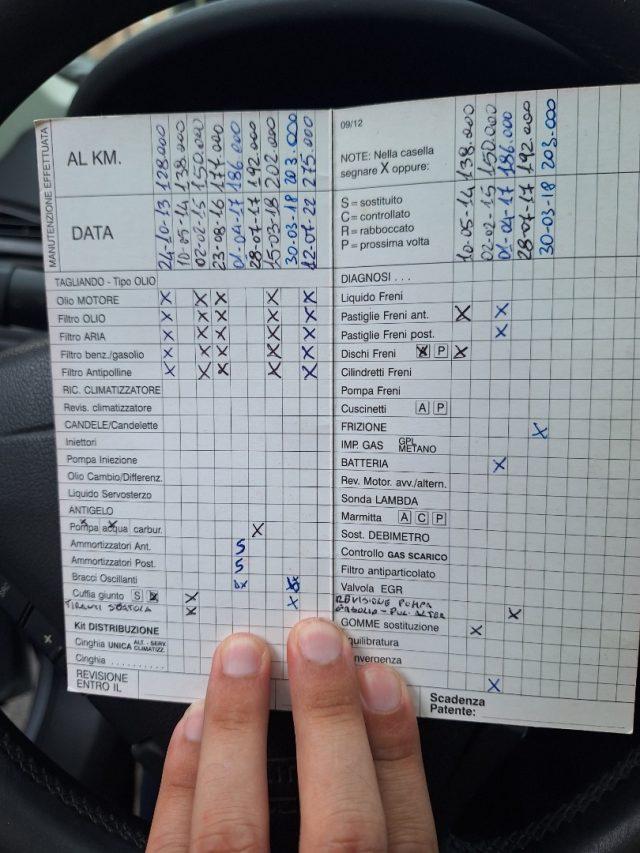 MANUTENZIONE EFFETTUATA
AL KM.
128000
138.000
150.000
177.000
186.000
192.000
202.000
203.000
275.000
DATA
24-10-13
10-05-14
02-02-15
23-08-16
01-04-17
28-07-17
15-03-18
30-03-18
12.07.22
TAGLIANDO - Tipo OLIO
Olio MOTORE X X X X X
Filtro OLIO X X X X X
Filtro ARIA X X X X X
Filtro benz./gasolio X X X X X
Filtro Antipolline X X X X X
RIC. CLIMATIZZATORE
Revis. climatizzatore
CANDELE/Candelette
Iniettori
Pompa Iniezione
Olio Cambio/Differenz.
Liquido Servosterzo
ANTIGELO
Pompa acqua carbur. X
Ammortizzatori Ant. S
Ammortizzatori Post. S
Bracci Oscillanti
Cuffia giunto S
Kit DISTRIBUZIONE
Cinghia UNICA ALT. - SERV. CLIMATIZZ.
Cinghia ..........
REVISIONE
ENTRO IL
09/12
NOTE: Nella casella
segnare X oppure:
S = sostituito
C = controllato
R = rabboccato
P = prossima volta
138.000
150.000
186.000
192.000
203.000
10-05-14
02-02-15
01-04-17
28-07-17
30-03-18
DIAGNOSI . . .
Liquido Freni
Pastiglie Freni ant. X X
Pastiglie Freni post. X
Dischi Freni A P X
Cilindretti Freni
Pompa Freni
Cuscinetti A P
FRIZIONE X
IMP. GAS GPL METANO
BATTERIA X
Rev. Motor. avv./altern.
Sonda LAMBDA
Marmitta A C P
Sost. DEBIMETRO
Controllo GAS SCARICO
Filtro antiparticolato
Valvola EGR
REVISIONE POMPA
X
GOMME sostituzione X
quilibratura
nvergenza
X
Scadenza
Patente: